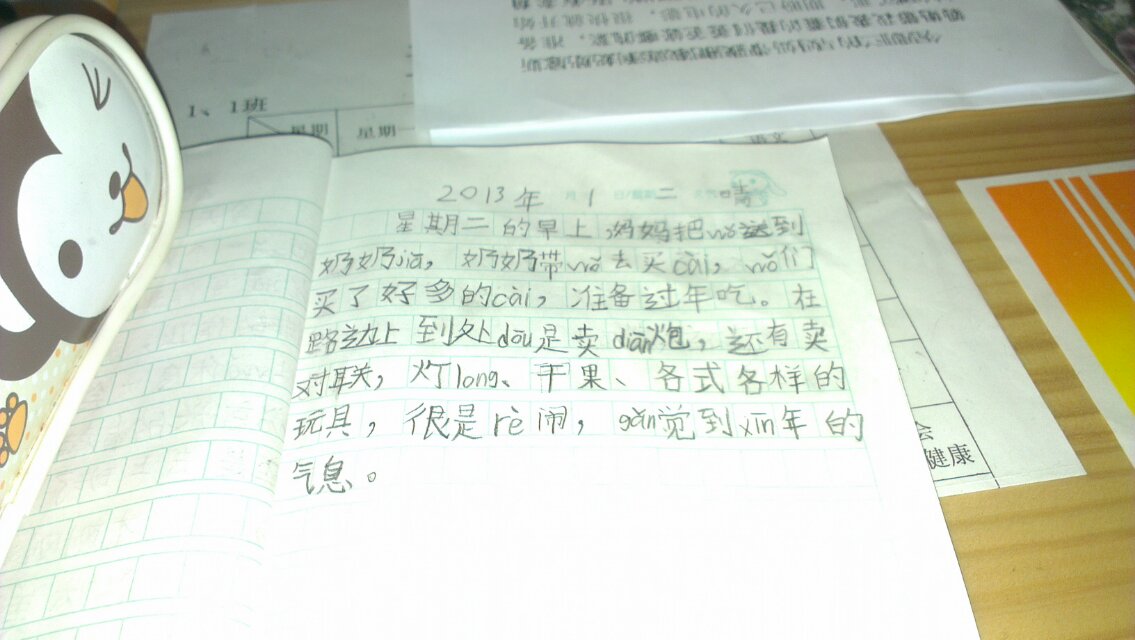 1、1班
星期 星期
2013年 月 1 日/星期 二 天气 晴
星期二的早上妈妈把wǒ送到
奶奶jiā，奶奶带wǒ去买cài，wǒ们
买了好多的cài，准备过年吃。在
路边上到处dōu是卖biān炮，还有卖
对联，灯long、干果、各式各样的
玩具，很是rè闹，gǎn觉到xīn年的
气息。
会
健康